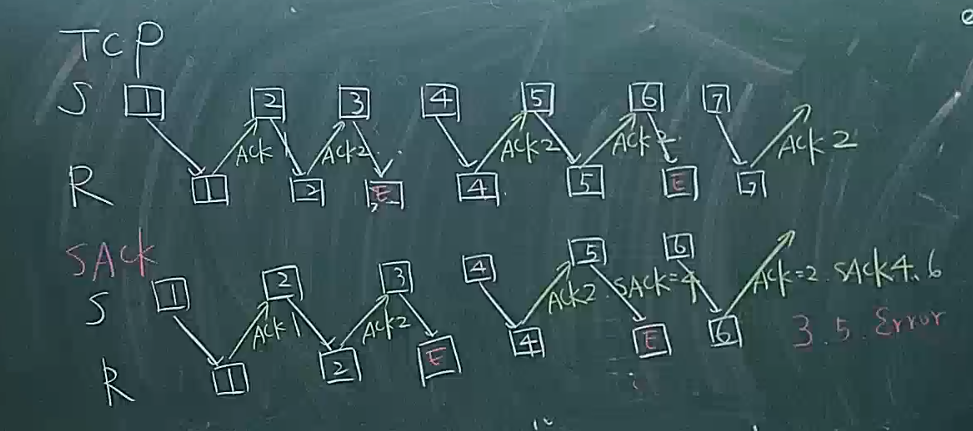 TCP
S 1 2 3 4 5 6 7
Ack 1 Ack2 Ack2 Ack2 Ack2
R 1 2 E 4 5 E 7
SAck
S 1 2 3 4 5 6
Ack1 Ack2 Ack2. SAck=4 Ack=2. SAck4.6
R 1 2 E 4 E 6
3.5. Error